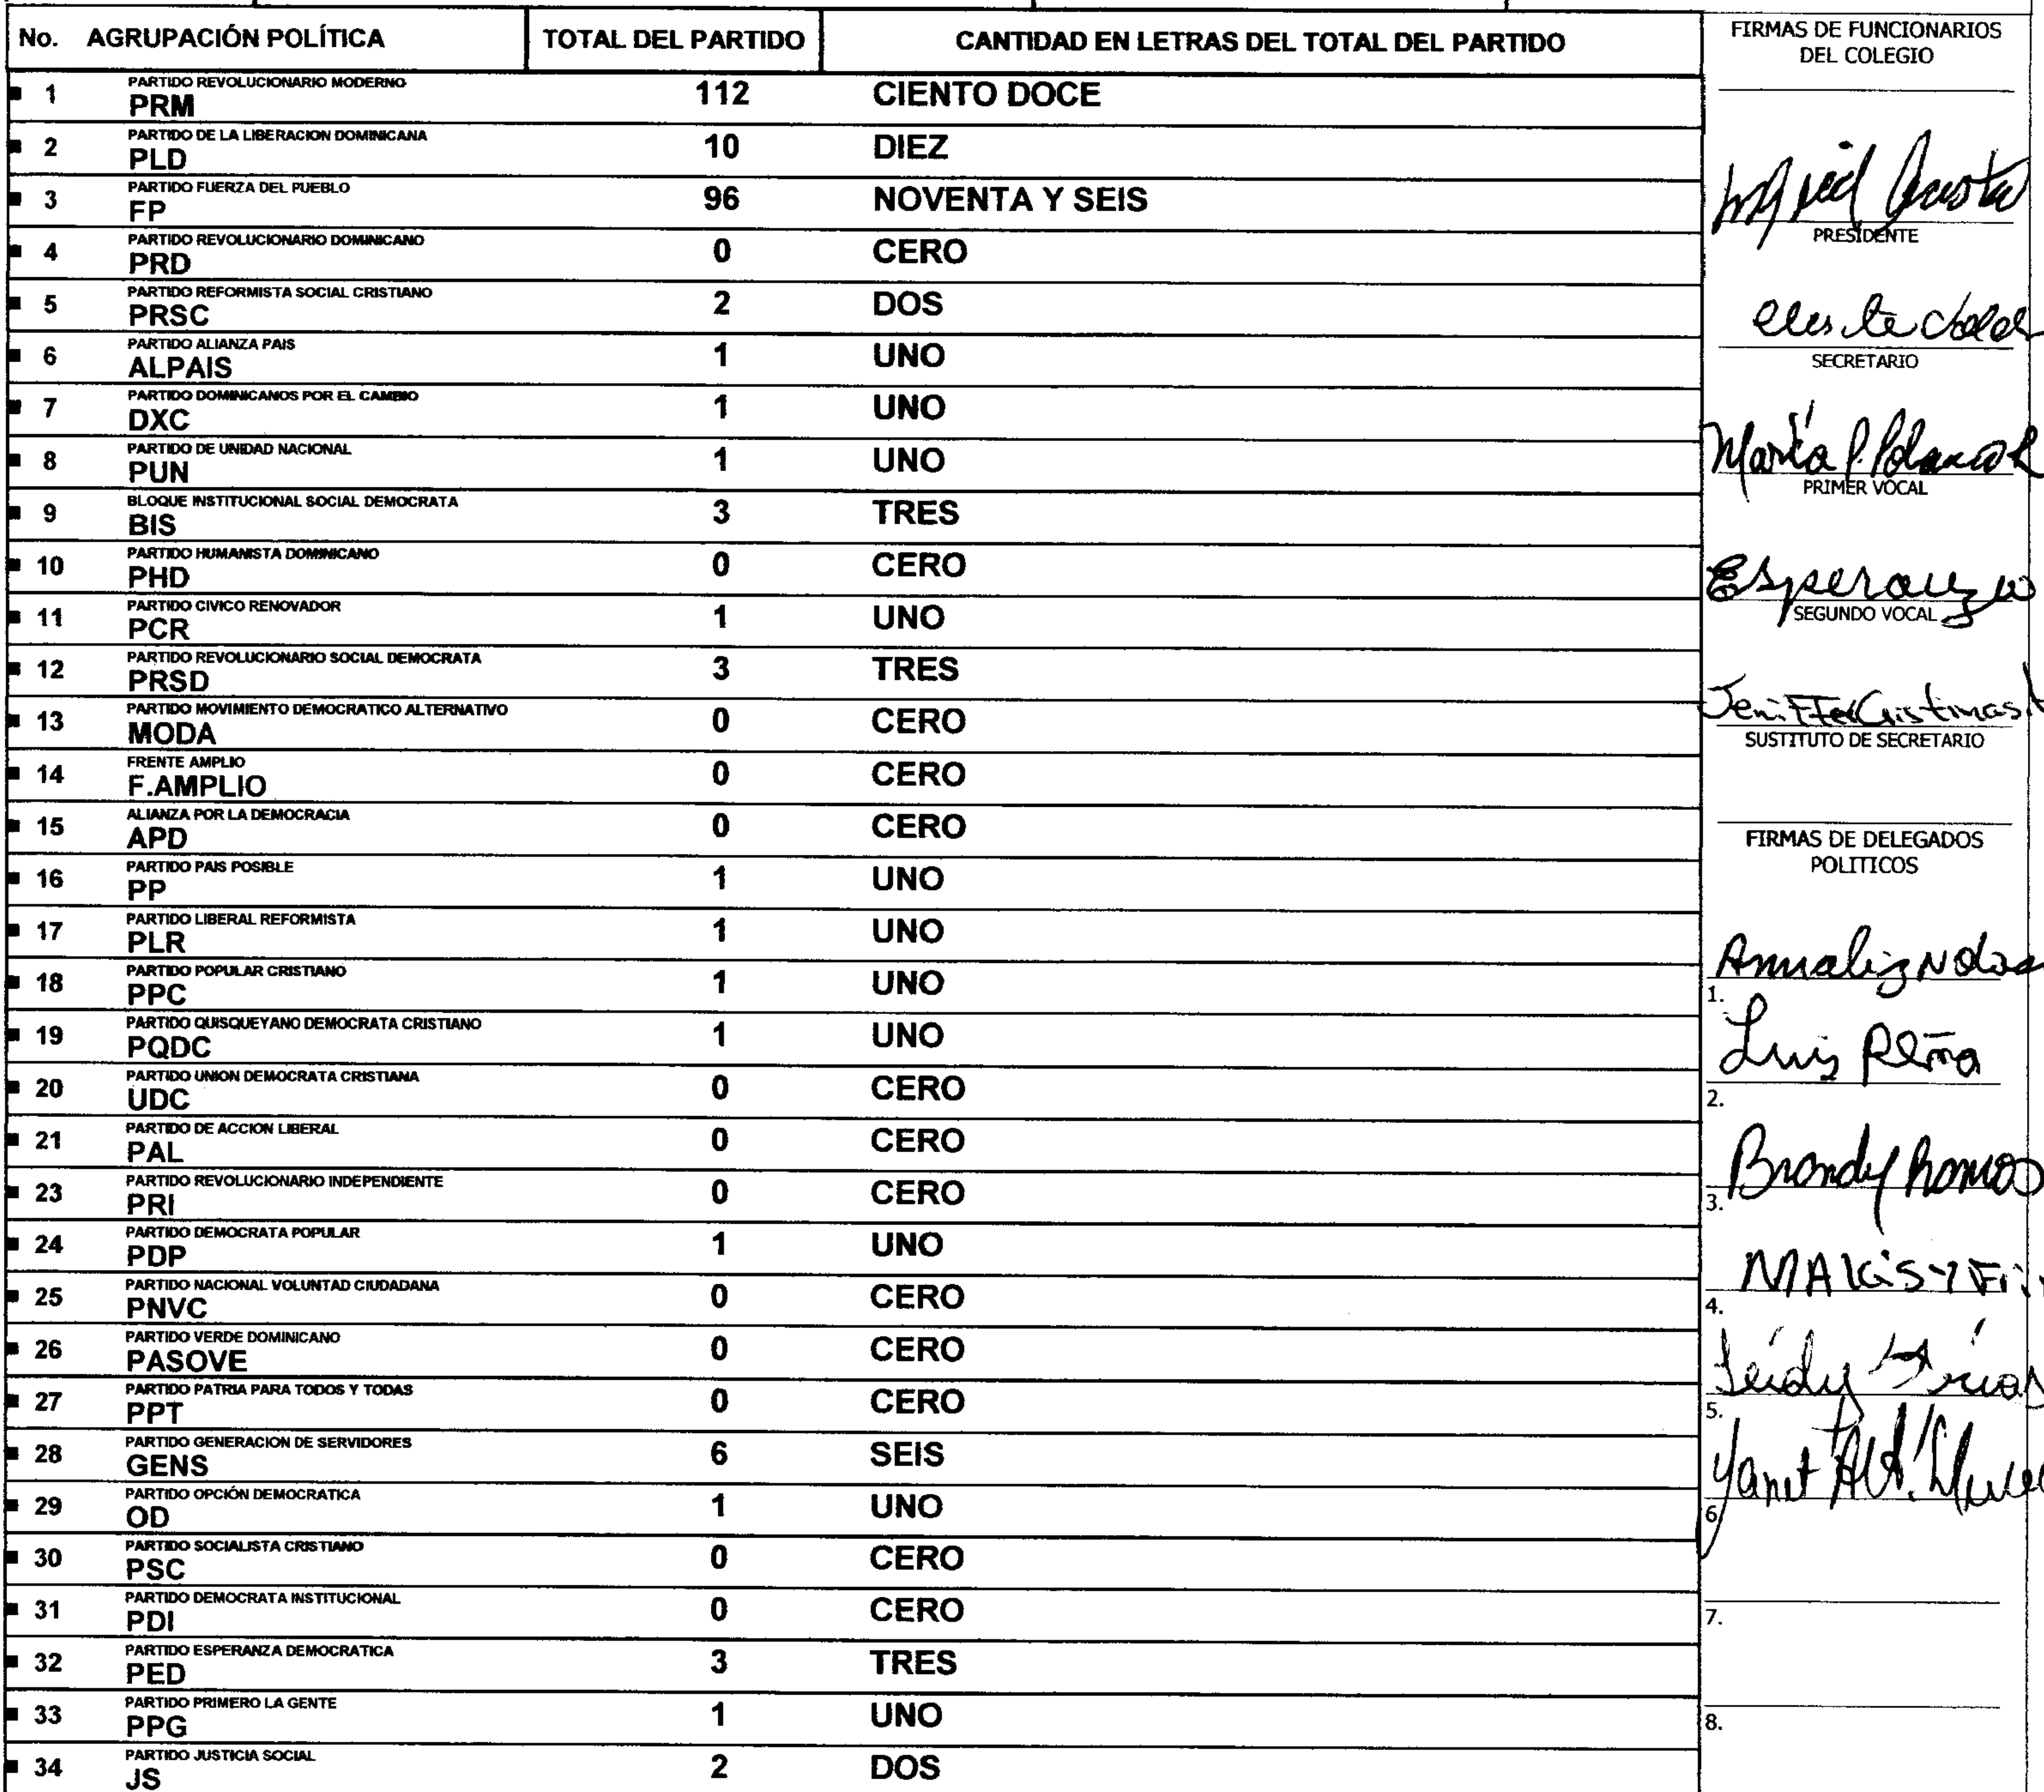 No. AGRUPACIÓN POLÍTICA TOTAL DEL PARTIDO CANTIDAD EN LETRAS DEL TOTAL DEL PARTIDO
PARTIDO REVOLUCIONARIO MODERNO
1 PRM 112 CIENTO DOCE
PARTIDO DE LA LIBERACION DOMINICANA
2 PLD 10 DIEZ
PARTIDO FUERZA DEL PUEBLO
3 FP 96 NOVENTA Y SEIS
PARTIDO REVOLUCIONARIO DOMINICANO
4 PRD 0 CERO
PARTIDO REFORMISTA SOCIAL CRISTIANO
5 PRSC 2 DOS
PARTIDO ALIANZA PAIS
6 ALPAIS 1 UNO
PARTIDO DOMINICANOS POR EL CAMBIO
7 DXC 1 UNO
PARTIDO DE UNIDAD NACIONAL
8 PUN 1 UNO
BLOQUE INSTITUCIONAL SOCIAL DEMOCRATA
9 BIS 3 TRES
PARTIDO HUMANISTA DOMINICANO
10 PHD 0 CERO
PARTIDO CIVICO RENOVADOR
11 PCR 1 UNO
PARTIDO REVOLUCIONARIO SOCIAL DEMOCRATA
12 PRSD 3 TRES
PARTIDO MOVIMIENTO DEMOCRATICO ALTERNATIVO
13 MODA 0 CERO
FRENTE AMPLIO
14 F.AMPLIO 0 CERO
ALIANZA POR LA DEMOCRACIA
15 APD 0 CERO
PARTIDO PAIS POSIBLE
16 PP 1 UNO
PARTIDO LIBERAL REFORMISTA
17 PLR 1 UNO
PARTIDO POPULAR CRISTIANO
18 PPC 1 UNO
PARTIDO QUISQUEYANO DEMOCRATA CRISTIANO
19 PQDC 1 UNO
PARTIDO UNION DEMOCRATA CRISTIANA
20 UDC 0 CERO
PARTIDO DE ACCION LIBERAL
21 PAL 0 CERO
PARTIDO REVOLUCIONARIO INDEPENDIENTE
23 PRI 0 CERO
PARTIDO DEMOCRATA POPULAR
24 PDP 1 UNO
PARTIDO NACIONAL VOLUNTAD CIUDADANA
25 PNVC 0 CERO
PARTIDO VERDE DOMINICANO
26 PASOVE 0 CERO
PARTIDO PATRIA PARA TODOS Y TODAS
27 PPT 0 CERO
PARTIDO GENERACION DE SERVIDORES
28 GENS 6 SEIS
PARTIDO OPCIÓN DEMOCRATICA
29 OD 1 UNO
PARTIDO SOCIALISTA CRISTIANO
30 PSC 0 CERO
PARTIDO DEMOCRATA INSTITUCIONAL
31 PDI 0 CERO
PARTIDO ESPERANZA DEMOCRATICA
32 PED 3 TRES
PARTIDO PRIMERO LA GENTE
33 PPG 1 UNO
PARTIDO JUSTICIA SOCIAL
34 JS 2 DOS
FIRMAS DE FUNCIONARIOS
DEL COLEGIO
PRESIDENTE
SECRETARIO
María P. Polanco
PRIMER VOCAL
Esperanza
SEGUNDO VOCAL
SUSTITUTO DE SECRETARIO
FIRMAS DE DELEGADOS
POLITICOS
1.
Luis Peña
2.
Brandy Ramos
3.
4.
5.
Yanet Alt.
6.
7.
8.